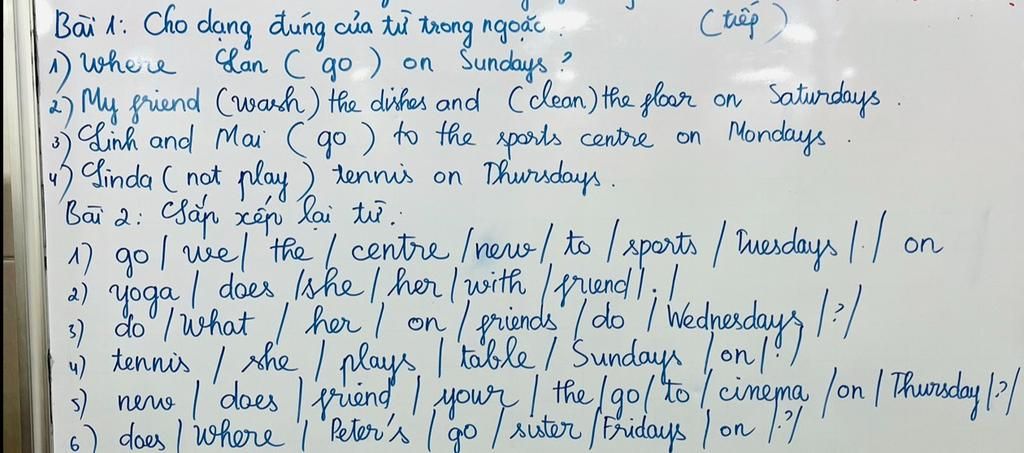 Bài 1: Cho dạng đúng của từ trong ngoặc. (tiếp)
1) Where Lan ( go ) on Sundays?
2) My friend (wash) the dishes and (clean) the floor on Saturdays.
3) Linh and Mai ( go ) to the sports centre on Mondays.
4) Linda ( not play ) tennis on Thursdays.
Bài 2: Sắp xếp lại từ.
1) go / we / the / centre / new / to / sports / Tuesdays / . / on
2) yoga / does / she / her / with / friend / . /
3) do / What / her / on / friends / do / Wednesdays / ? /
4) tennis / she / plays / table / Sundays / on / . /
5) new / does / friend / your / the / go / to / cinema / on / Thursday / ? /
6) does / where / Peter's / go / sister / Fridays / on / ? /